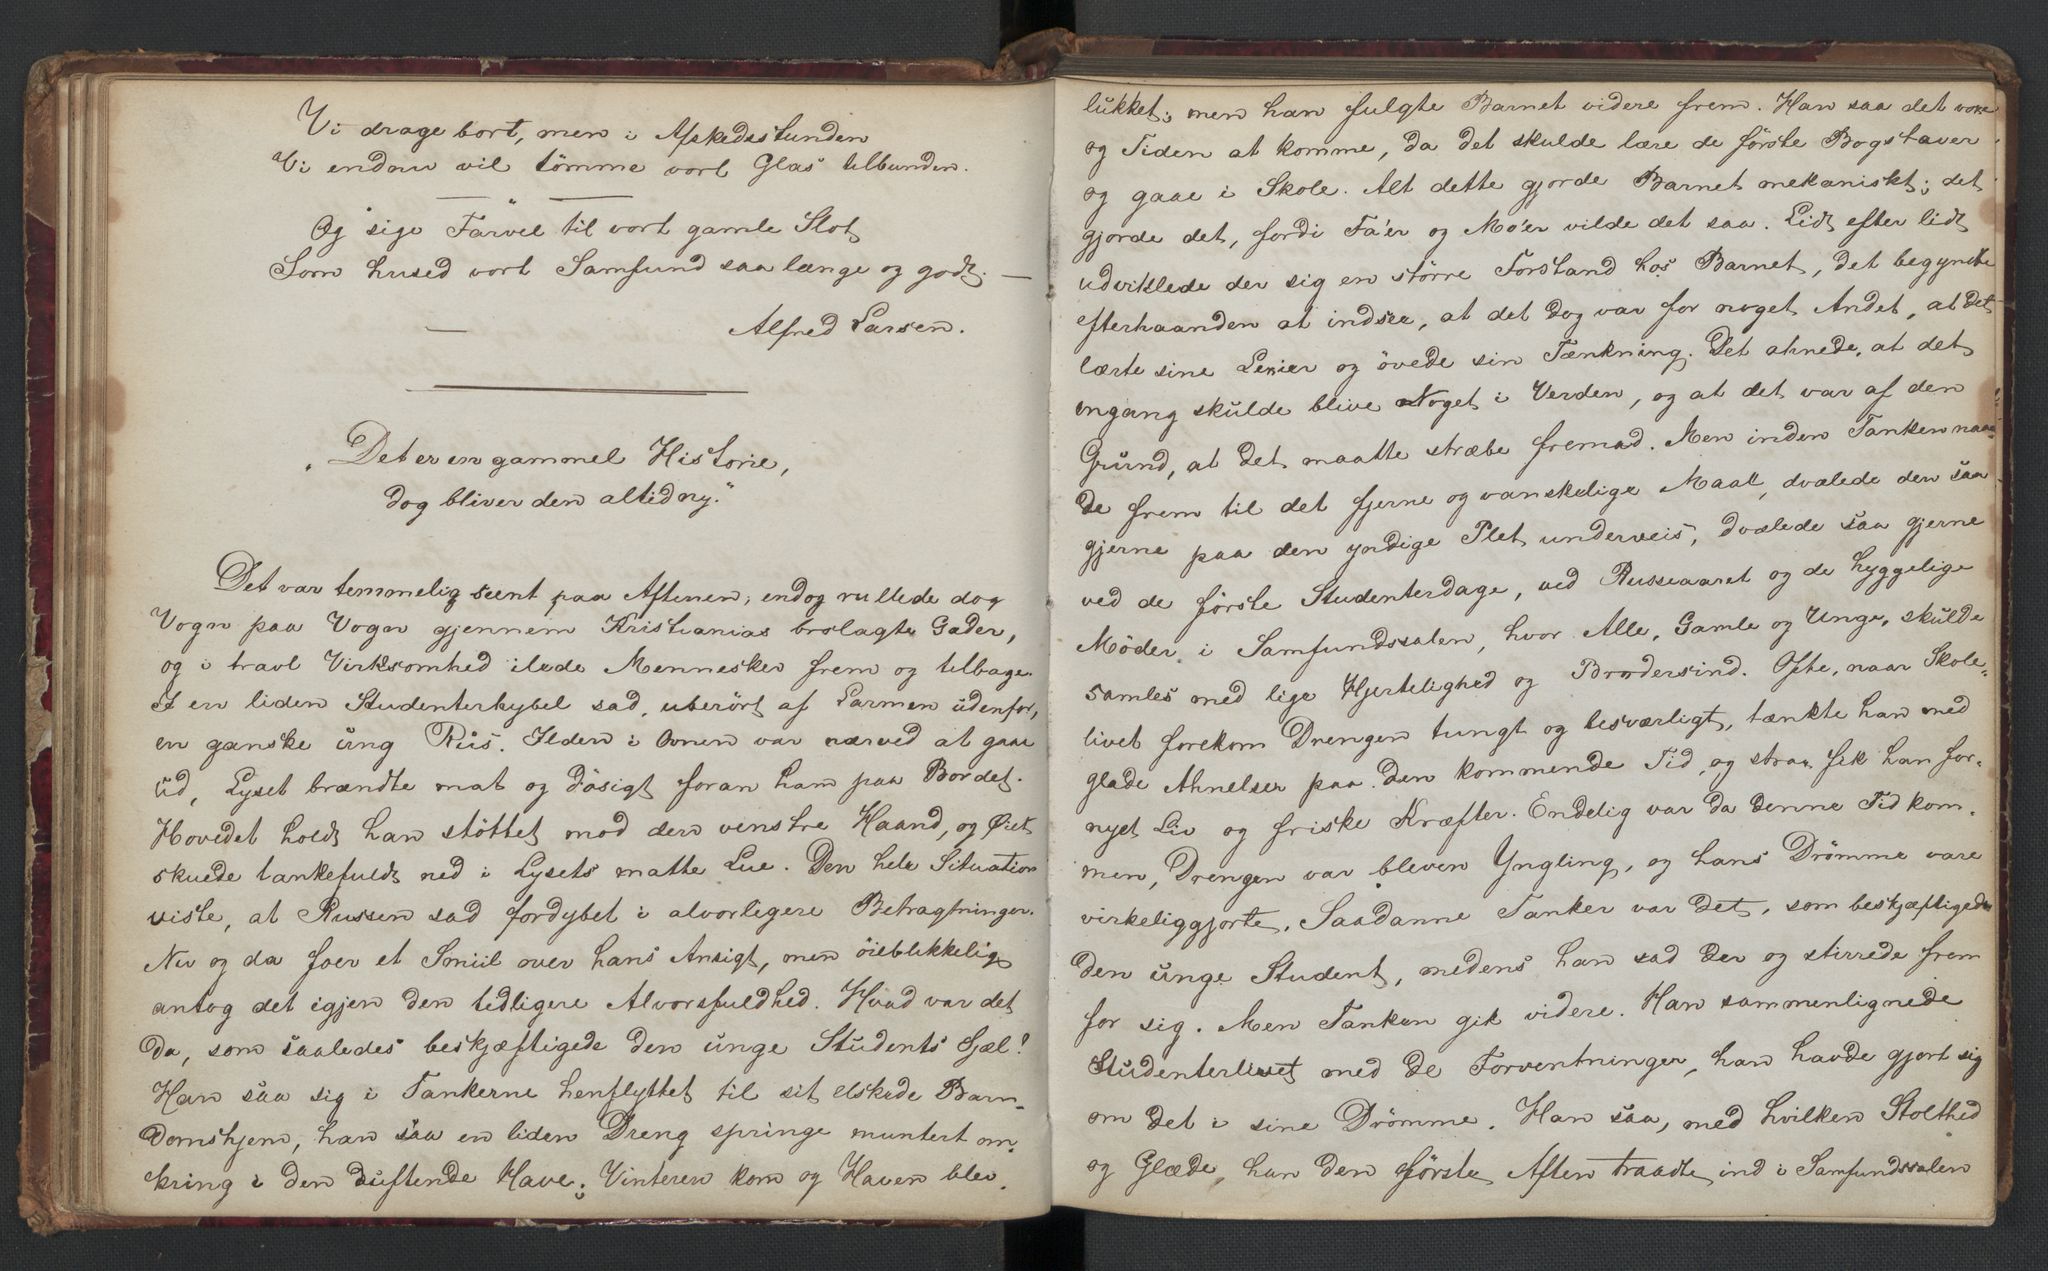 Vi drage bort, men i Afskedsstunden
Vi endnu vil tömme vort Glas tilbunden.
Og sige Farvel til vort gamle Slot
Som huset vort Samfund saa længe og godt. —
Alfred Larsen.
„Det er en gammel Historie,
dog bliver den altid ny."
Det var temmelig seent paa Aftenen; endog rullede dog
Vogn paa Vogn gjennem Kristianias brolagte Gader,
og i travl Virksomhed ilede Mennesker frem og tilbage.
I en liden Studenterhybel sad, uberört af Larmen udenfor,
en ganske ung Rus. Ilden i Ovnen var nærved at gaae
ud, Lyset brændte mat og dösigt foran ham paa Bordet.
Hovedet holdt han stöttet mod den venstre Haand, og Øiet
skuede tankefuldt ned i Lysets matte Lue. Den hele Situation
viste, at Russen sad fordybet i alvorligere Betragtninger.
Nu og da foer et Smiil over hans Ansigt, men öieblikkelig
antog det igjen den tidligere Alvorsfuldhed. Hvad var det
da, som saaledes beskjæftigede den unge Students Sjæl!
Han saa sig i Tankerne henflyttet til sit elskede Barn-
domshjem, han saa en liden Dreng springe muntert om-
kring i den duftende Have; Vinteren kom og Haven blev
lukket; men han fulgte Barnet videre frem. Han saa det voxe
og Tiden at komme, da det skulde lære de förste Bogstaver
og gaae i Skole. Alt dette gjorde Barnet mekaniskt; det
gjorde det, fordi Fa'er og Mo'er vilde det saa. Lidt efter lidt
udviklede der sig en större Forstand hos Barnet, det begyndte
efterhaanden at indsee, at det dog var for noget Andet, at det
lærte sine Lexier og övede sin Tænkning. Det ahnede, at det
engang skulde blive Noget i Verden, og at det var af den
Grund, at det maatte stræbe fremad. Men inden Tanken naae-
de frem til det fjerne og vanskelige Maal, dvælede den saa
gjerne paa den yndige Plet underveis, dvælede saa gjerne
ved de förste Studenterdage, ved Russeaaret og de hyggelige
Møder i Samfundssalen, hvor Alle, Gamle og Unge, skulde
samles med lige Hjertelighed og Brodersind. Ofte, naar Skole-
livet forekom Drengen tungt og besværligt, tænkte han med
glade Ahnelser paa den kommende Tid, og strax fik han for-
nyet Liv og friske Kræfter. Endelig var da denne Tid kom-
men, Drengen var bleven Yngling, og hans Drömme vare
virkeliggjorte. Saadanne Tanker var det, som beskjæftigede
den unge Student, medens han sad der og stirrede frem
for sig. Men Tanken gik videre. Han sammenlignede
Studenterlivet med de Forventninger, han havde gjort sig
om det i sine Drömme. Han saa, med hvilken Stolthed
og Glæde, han den förste Aften traadte ind i Samfundssalen